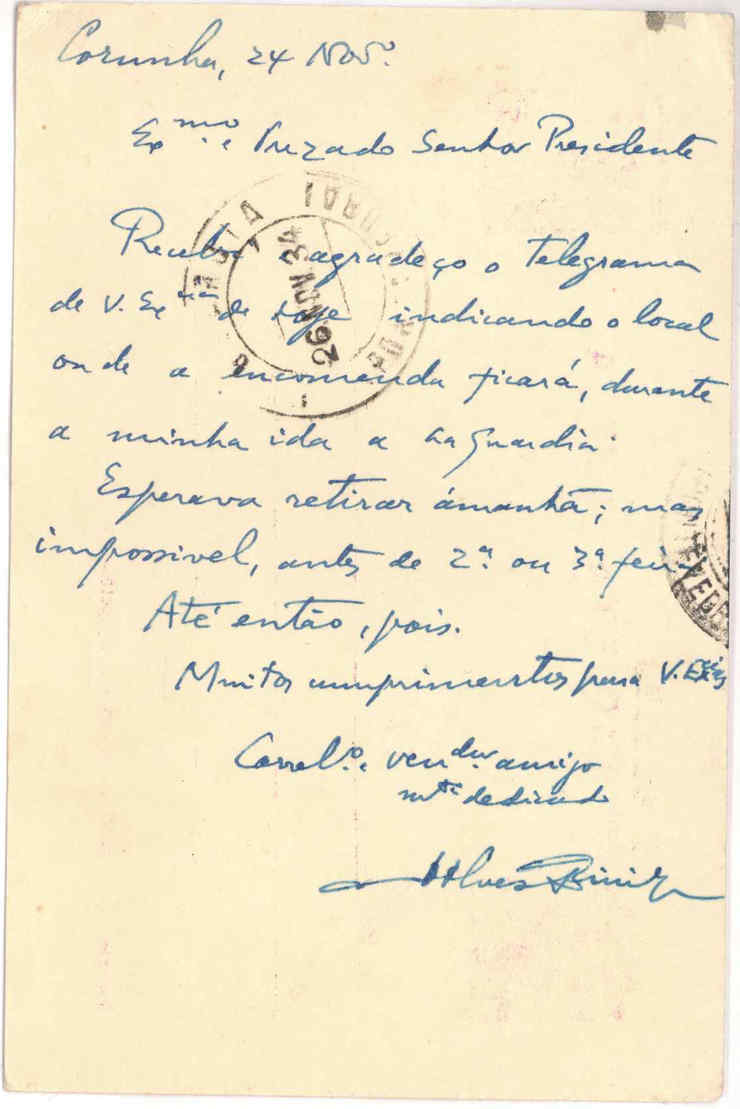 Corunha, 24 Nov.º
Ex.mo e Prezado Senhor Presidente
Recebi e agradeço o telegrama
de V. Ex.cia de hoje indicando o local
onde a encomenda ficará, durante
a minha ida a La Guardia.
Esperava retirar ámanhã; mas
impossivel, antes de 2ª. ou 3ª. feira
Até então, pois.
Muitos cumprimentos para V. Ex.cias
ven.dor amigo
m.to dedicado
Alves
26 NOV 34